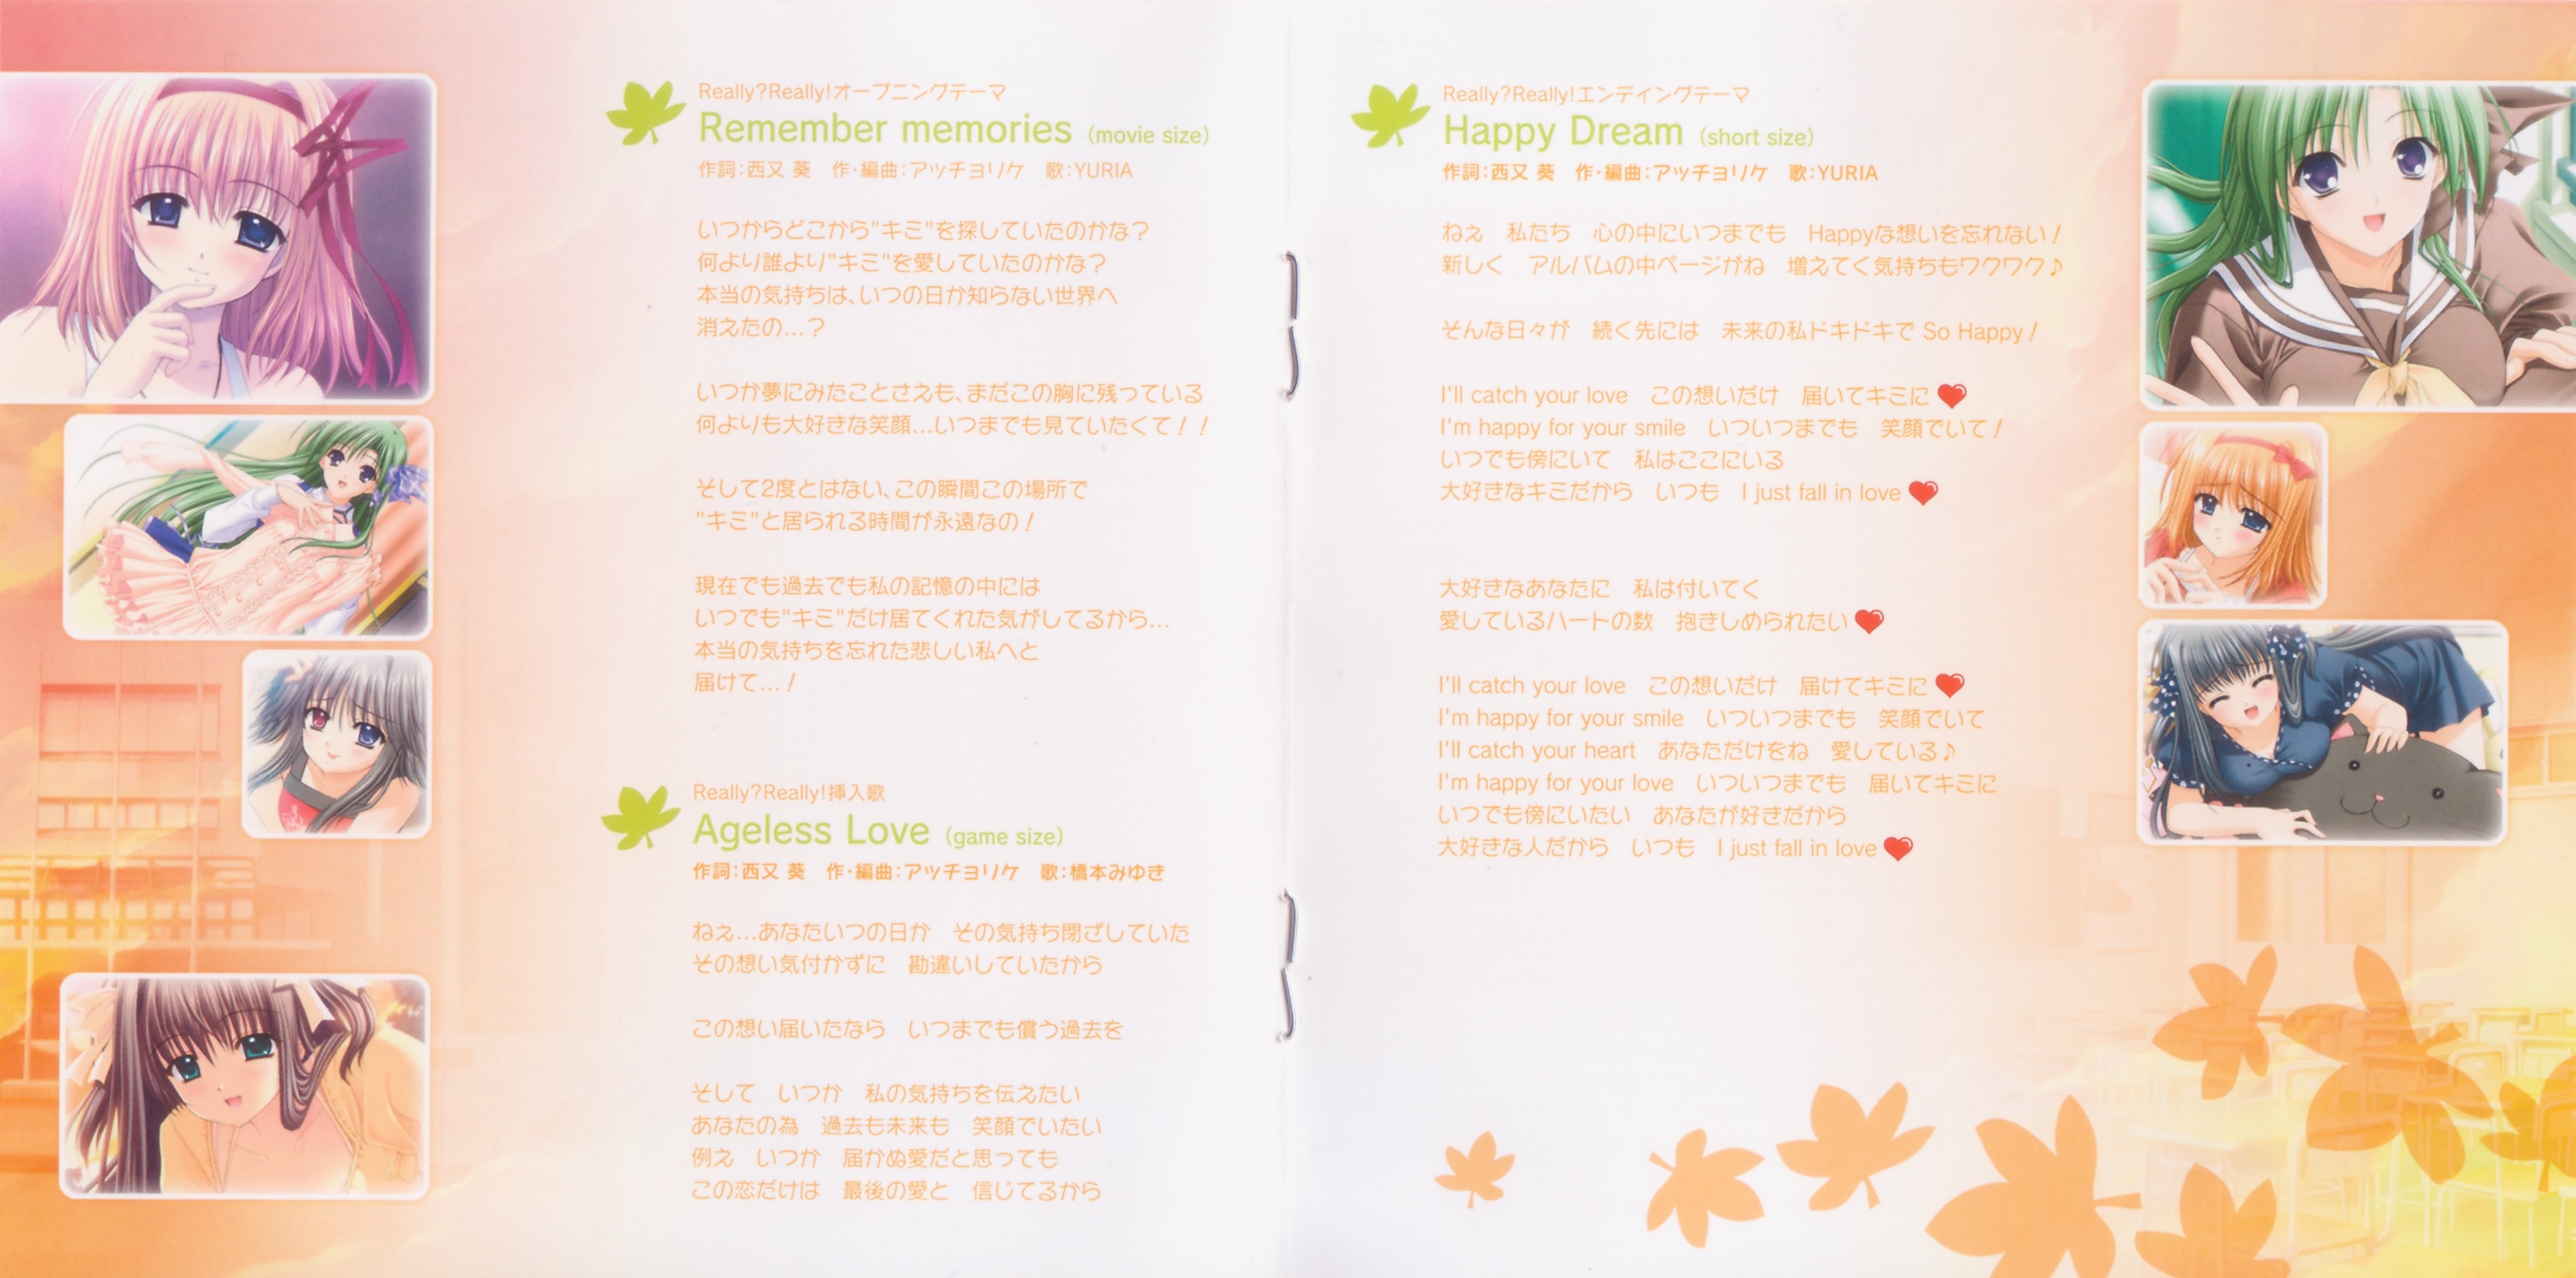 Really?Really!オープニングテーマ
Remember memories (movie size)
作詞:西又 葵　作・編曲:アッチョリケ　歌:YURIA
いつからどこから"キミ"を探していたのかな?
何より誰より"キミ"を愛していたのかな?
本当の気持ちは、いつの日か知らない世界へ
消えたの…?
いつか夢にみたことさえも、まだこの胸に残っている
何よりも大好きな笑顔…いつまでも見ていたくて!!
そして2度とはない、この瞬間この場所で
"キミ"と居られる時間が永遠なの!
現在でも過去でも私の記憶の中には
いつでも"キミ"だけ居てくれた気がしてるから…
本当の気持ちを忘れた悲しい私へと
届けて…!
Really?Really!挿入歌
Ageless Love (game size)
作詞:西又 葵　作・編曲:アッチョリケ　歌:橋本みゆき
ねぇ…あなたいつの日か　その気持ち閉ざしていた
その想い気付かずに　勘違いしていたから
この想い届いたなら　いつまでも償う過去を
そして　いつか　私の気持ちを伝えたい
あなたの為　過去も未来も　笑顔でいたい
例え　いつか　届かぬ愛だと思っても
この恋だけは　最後の愛と　信じてるから
Really?Really!エンディングテーマ
Happy Dream (short size)
作詞:西又 葵　作・編曲:アッチョリケ　歌:YURIA
ねぇ　私たち　心の中にいつまでも　Happyな想いを忘れない!
新しく　アルバムの中ページがね　増えてく気持ちもワクワク♪
そんな日々が　続く先には　未来の私ドキドキで So Happy!
I'll catch your love　この想いだけ　届いてキミに♥
I'm happy for your smile　いついつまでも　笑顔でいて!
いつでも傍にいて　私はここにいる
大好きなキミだから　いつも　I just fall in love♥
大好きなあなたに　私は付いてく
愛しているハートの数　抱きしめられたい♥
I'll catch your love　この想いだけ　届けてキミに♥
I'm happy for your smile　いついつまでも　笑顔でいて
I'll catch your heart　あなただけをね　愛している♪
I'm happy for your love　いついつまでも　届いてキミに
いつでも傍にいたい　あなたが好きだから
大好きな人だから　いつも　I just fall in love♥